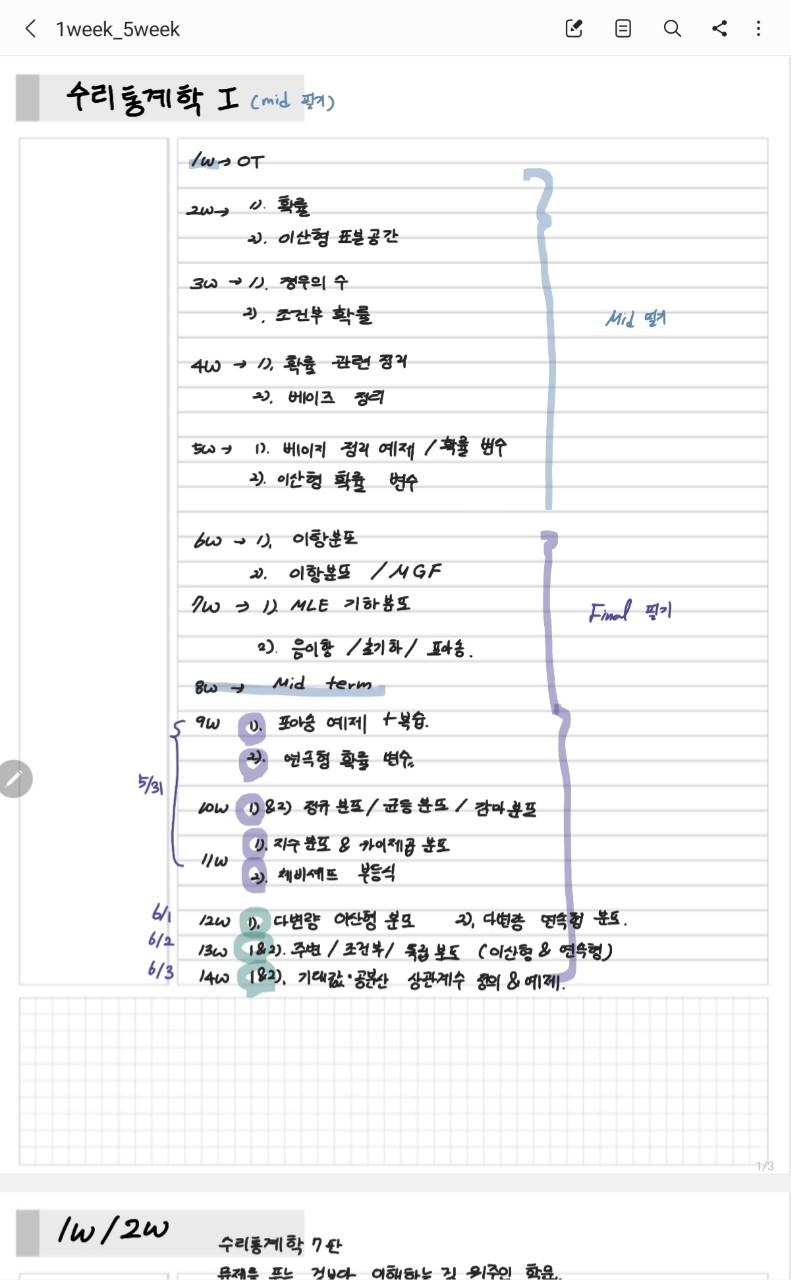 1week_5week
수리통계학 I (mid 필기)
1w → OT
2w → 1). 확률
2). 이산형 표본공간
3w → 1). 경우의 수
2). 조건부 확률
4w → 1). 확률 관련 정리
2). 베이즈 정리
5w → 1). 베이지 정리 예제 / 확률 변수
2). 이산형 확률 변수
Mid 필기
6w → 1). 이항분포
2). 이항분포 / MGF
7w → 1). MLE 기하분포
2). 음이항 / 초기하 / 포아송.
Final 필기
8w → Mid term
9w 1). 포아송 예제 + 복습.
2). 연속형 확률 변수.
5/31
10w 1)&2) 정규 분포 / 균등 분포 / 감마분포
11w 1). 지수 분포 & 카이제곱 분포
2). 체비셰프 부등식
6/1 12w 1). 다변량 이산형 분포 2), 다변층 연속형 분포.
6/2 13w 1&2). 주변 / 조건부 / 독립 분포 (이산형 & 연속형)
6/3 14w 1&2). 기대값·공분산 상관계수 정의 & 예제.
1/3
1w/2w
수리통계학 7판
문제를 푸는 것보다 이해하는 것 위주인 학문.